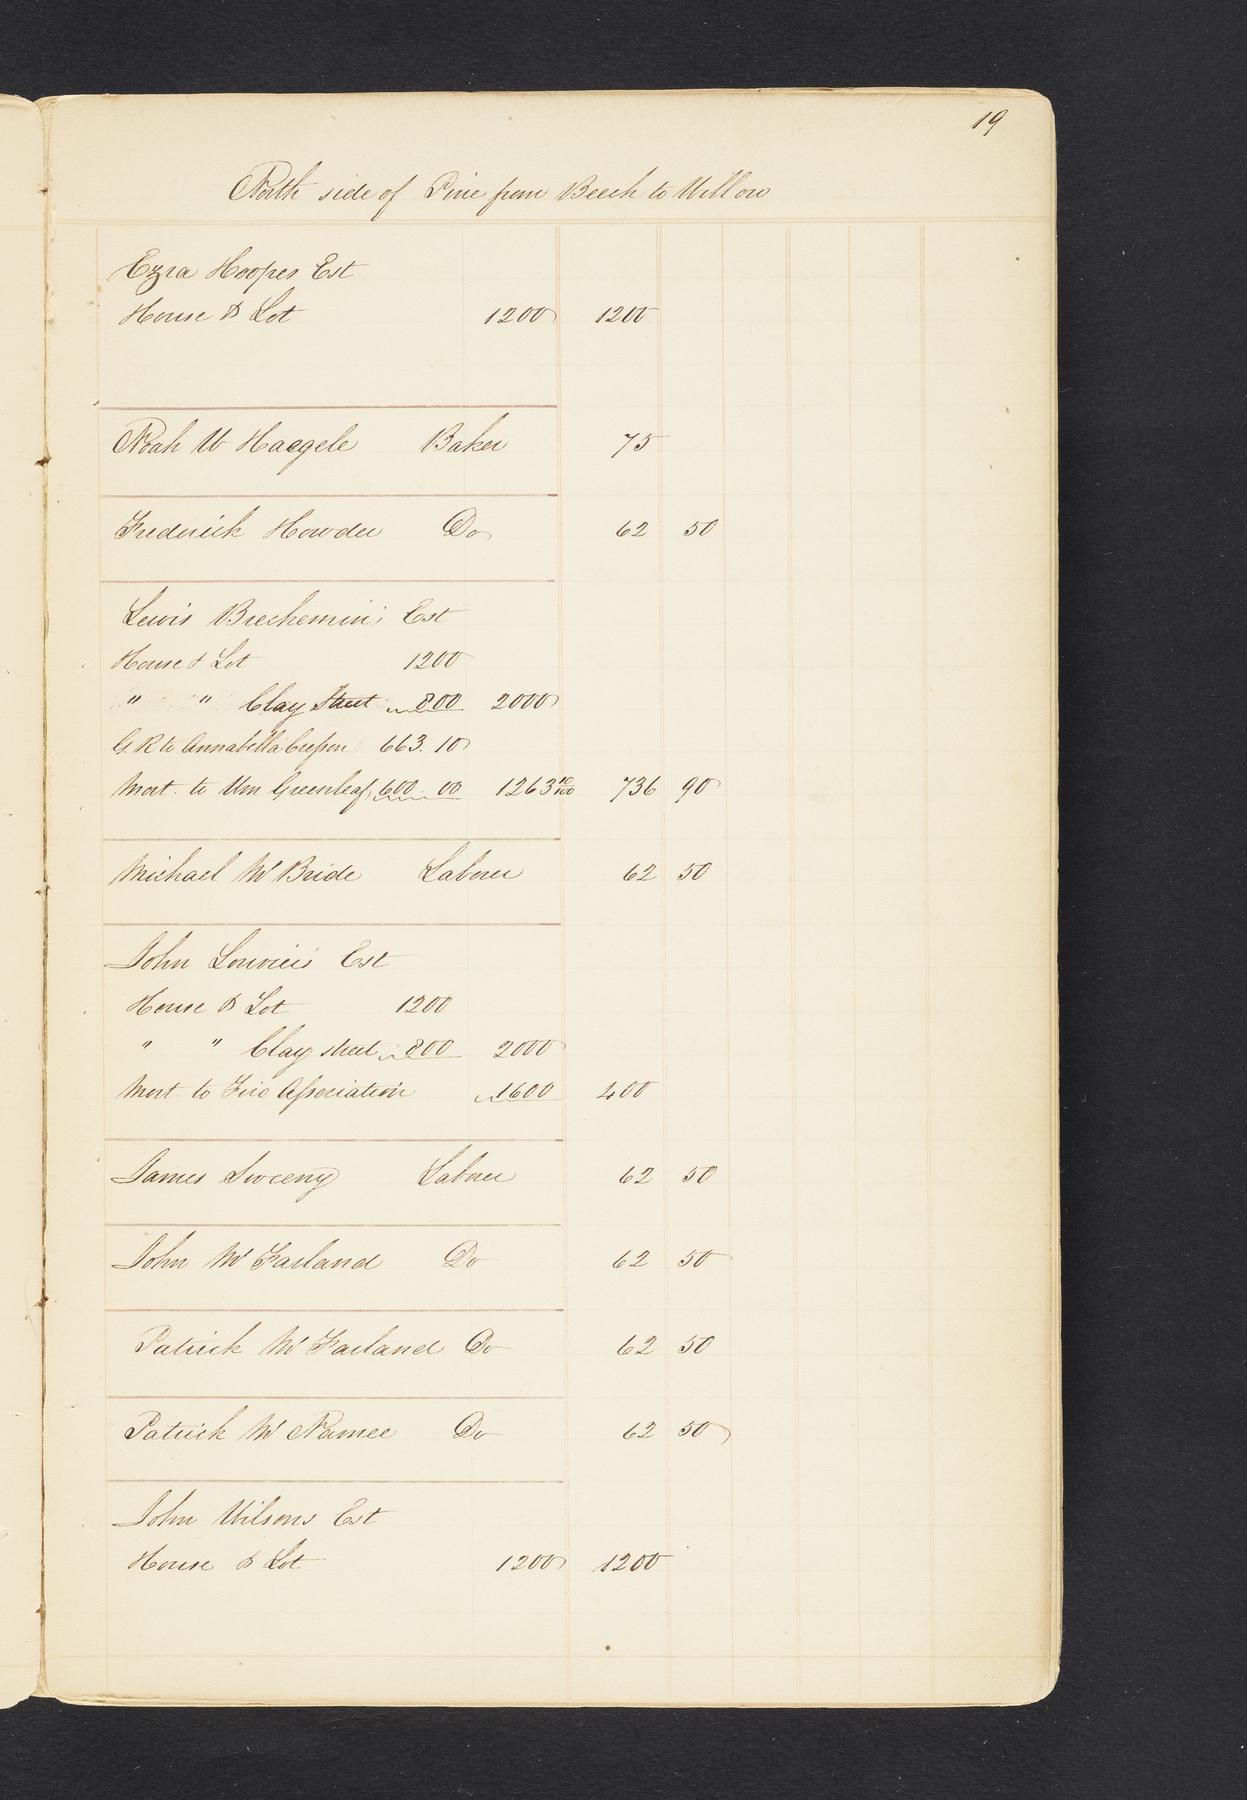 19
North side of Pine from Beech to Willow
Ezra Hoopes Est
House & Lot 1200 1200
Noah W Haegele Baker 75
Frederick Howder Do 62 50
Lewis Brechemin's Est
House & Lot 1200
" " Clay Street 800 2000
G. R to Annabella Cresson 663.10
Mort. to Wm Greenleaf 600.00 1263 10/100 736 90
Michael Mc Bride Laborer 62 50
John Lourie's Est
House & Lot 1200
" " Clay street 800 2000
Mort. to Fire Association 1600 400
James Sweeny Laborer 62 50
John Mc Farland Do 62 50
Patrick Mc Farland Do 62 50
Patrick Mc Namee Do 62 50
John Wilsons Est
House & Lot 1200 1200